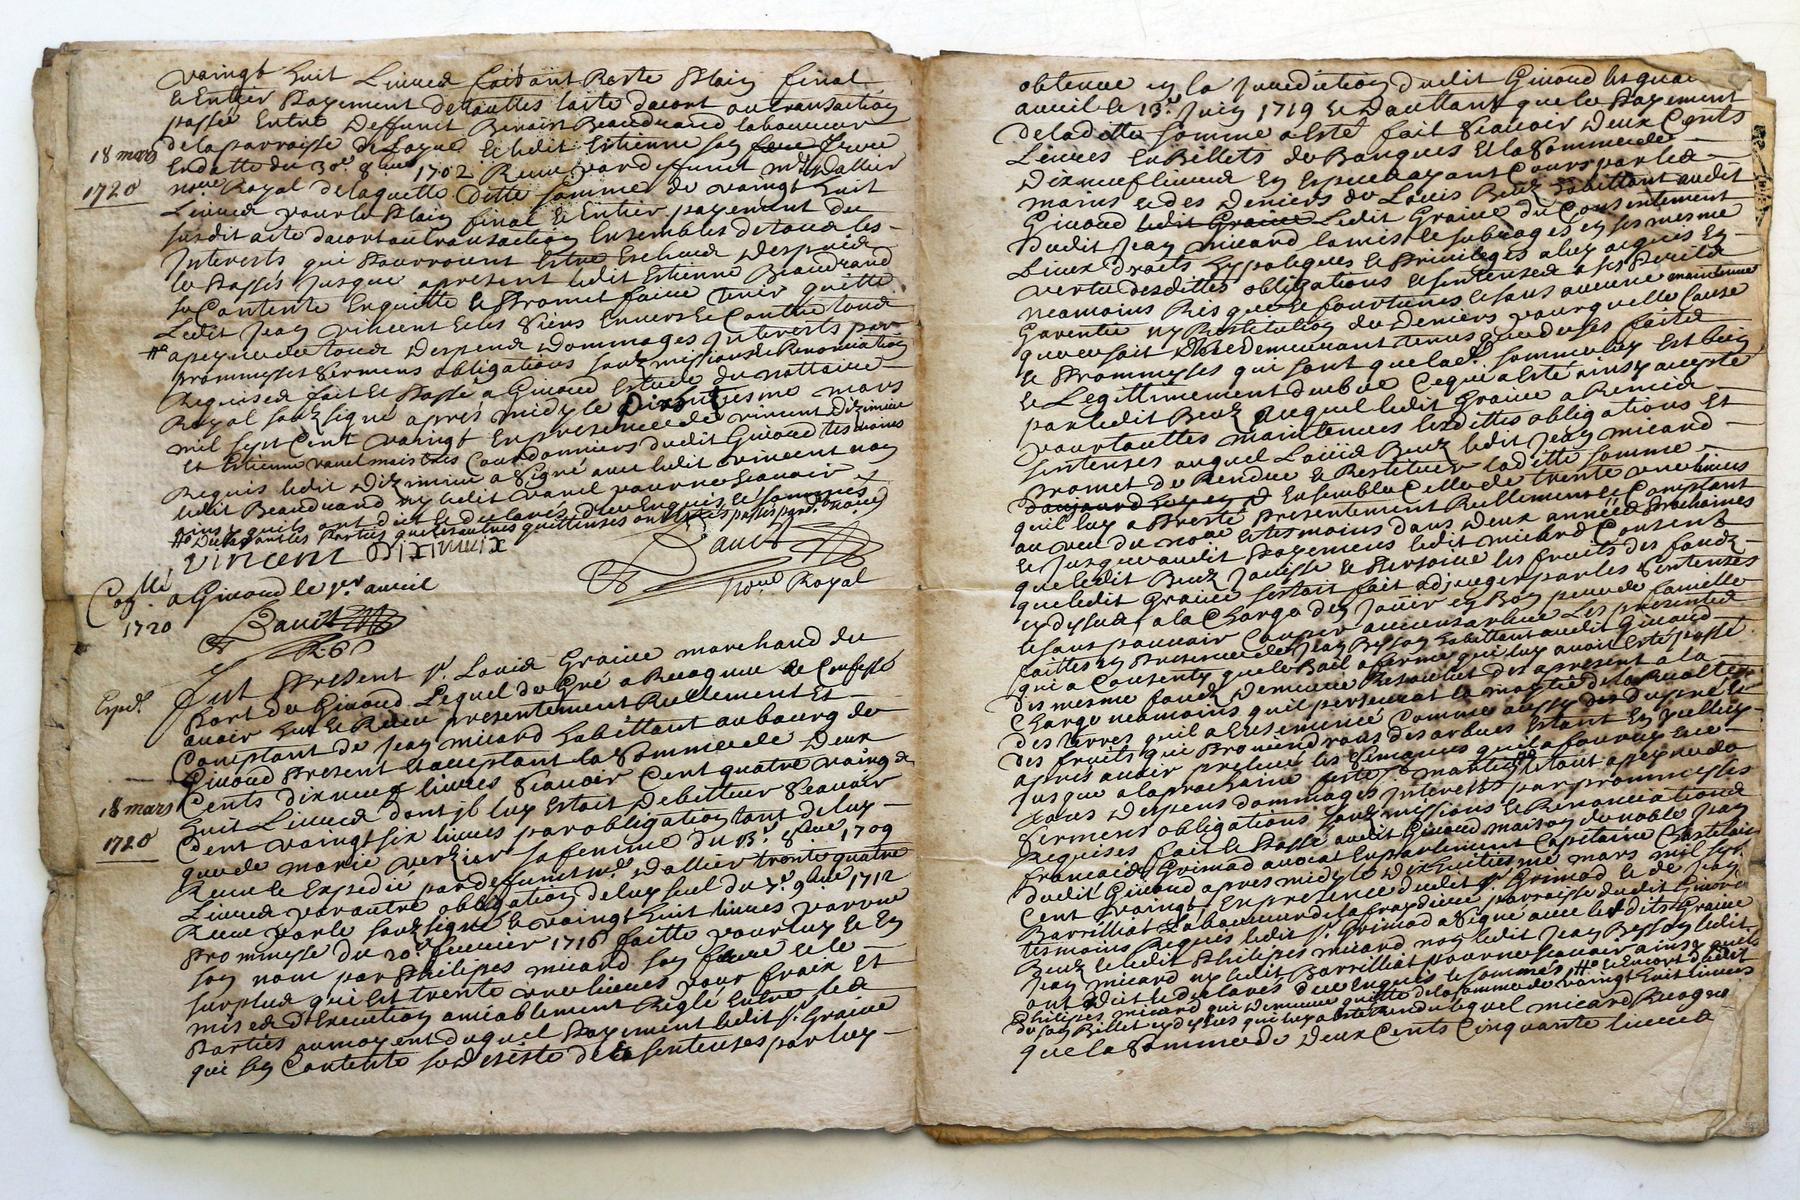 vaingt huit Livres faisant Reste plain final
& Entier payement de toutte laite dacort ou transaction
passé Entre Deffunct Benoist Beaudrand laboureur
de la parroisse de & ledit Estienne son frere
18 mars
1720
En datte du 30e 8bre 1702 Receu par deffunct Me Dallier
nore Royal de laquelle ditte somme de vaingt huit
Livres pour le plain final & Entier payement du
susdit acte dacort ou transaction Ensembles de tous les
Interests qui pourroient Estre Escheus despuis
le passés jusque apresent ledit Estienne Beaudrand
se Contente Enquitte & promet faire tenir quitte
Ledit Jean vincent & les siens Envers & Contre tous
apeyne de tous despens dommages Interests par
prommesses sermens obligations soubzmissions & Renonciation
Requises fait & passé a Giraud Estude du nottaire
Royal soubzsigné apres midy le Dixhuitiesme mars
mil sept Cent vaingt En presence de vincent diximieu
et Estienne vanel maistres Courdonniers dudit Giraud tesmoins
Requis ledit diximieu a signé avec ledit vincent non
ledit Beaudrand ny ledit vanel pour ne sçavoir
ainsy quils ont dict & declarés deue Enquis & sommés
vincent Diximieix
nore Royal
Collé
a Giraud le 1er avril
1720
Expé.
fut present sr. Louis Graive marchand du
port de Giraud Lequel de Gré a Recogneu & Confessé
avoir heu & Receu presentement Reellement Et
Comptant de Jean micard habittant au bourg de
Giraud present & acceptant la somme de Deux
18 mars
1720
Cents dixneuf livres sçavoir Cent quatre vaingt
huit Livres dont jl luy Estoit debitteur sçavoir
Cent vaingt six livres par obligation tant de luy
que de marie verzier sa femme du 13e 8bre 1709
Receu & Expedié par deffunct Me Dallier trente quatre
Livres par autre obligation de luy seul du 7e 9bre 1712
Receu par le soubzsigné & vaingt huit livres par une
prommesse du 20e feuvrier 1716 faitte pour luy & En
son nom par philipes micard son frere & le
surplus qui Est trente une livres pour fraix et
mises dExecution amiablement Reglé Entre les
parties au moyent duquel payement ledit sr. Graive
qui sen Contente se desiste des sentenses par luy
obtenue En la jurediction dudit Giraud les quatre
avril & 13e Juin 1719 & Daultant que le payement
de laditte somme a Esté fait sçavoir Deux Cents
Livres En Billets de Banques & la somme de
Dixneuf livres En Espece ayant Cours par les
mains & des deniers de Louis Beuz habittant audit
Giraud ledit Graive du Consentement
dudit Jean micard la mis & subrogés En ses mesme
Lieux droits hyppoteques & privileges a luy acquis En
vertu desdittes obligations & sentenses a ses perils
neamoins Risques & fourtunes & sans aucune maintenue
Garentie ny Restitution de deniers pour quelle Cause
que ce soit demeurant tenus que de ses faits
& prommesses qui sont que lade. somme luy Est bien
& Legittimement deube Ce qui a Esté ainsy accepté
par ledit Beuz auquel ledit Graive a Remis
pour touttes maintenues lesdittes obligations et
sentenses auquel Louis Beuz ledit Jean micard
promet de Rendre & Restituer laditte somme
Ensemble Celle de trente une livres
quil luy a presté presentement Reellement & Comptant
au veu du nore & tesmoins dans deux années prochaines
& jusque audit payement ledit micard Consent
que ledit Beuz jouisse & persoive les fruits des fondz
que ledit Graive sestoit fait adjuger par les sentenses
cy dessus a la Charge den jouir En Bon pere de famille
& sans pouvoir Couper aucuns arbres Les presentes
faittes En presence de Jean habittant audit Giraud
qui a Consenty que le Bail a ferme qui luy avoit Esté passé
des mesme fondz demeure Resolus des apresent a la
Charge neamoins quil persevrat la moytié de la Recolte
des terres quil a Ensemencé Comme aussy des
des fruits qui proviendront des arbres Estant En
apres avoir prelevé les semances quil a fourny
jusque a la prochaine feste st. martin & tout apeyne de
tous despens dommages Interests par prommesses
sermens obligations soubzmissions & Renonciations
Requises fait & passé audit Giraud maison de noble Jean
francois Grimod avocat En parlement Capitaine Chastelain
dudit Giraud apres midy le dixhuitiesme mars mil sept
Cent vaingt En presence dudit sr. Grimod & de Jean
Barrilliat Laboureur de la parroisse dudit Giraud
tesmoins Requis ledit sr. Grimod a signé avec lesdits Graive
Beuz & ledit Philipes micard non ledit Jean ledit
Jean micard ny ledit Barrilliat pour ne sçavoir ainsy quils
ont dict & declarés deue Enquis & sommés
philipes micard qui demeure quitte de la somme de vaingt huit livres
lequel micard Recognoit
que la somme de Deux Cents Cinquante livres